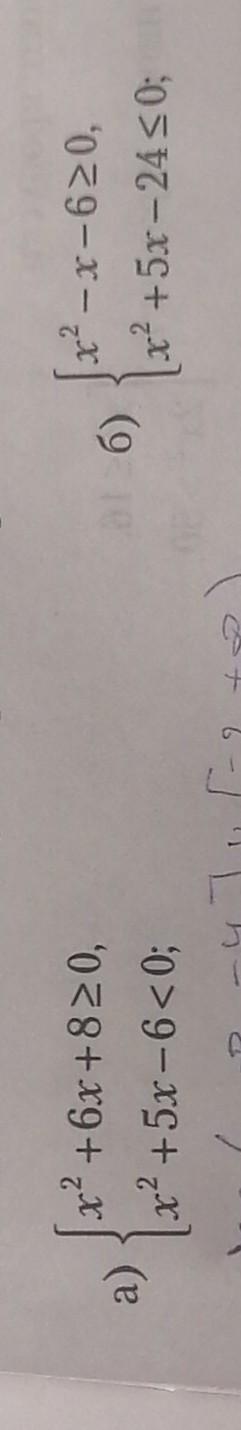 а) { x² + 6x + 8 ≥ 0,
x² + 5x − 6 < 0;
б) { x² − x − 6 ≥ 0,
x² + 5x − 24 ≤ 0;